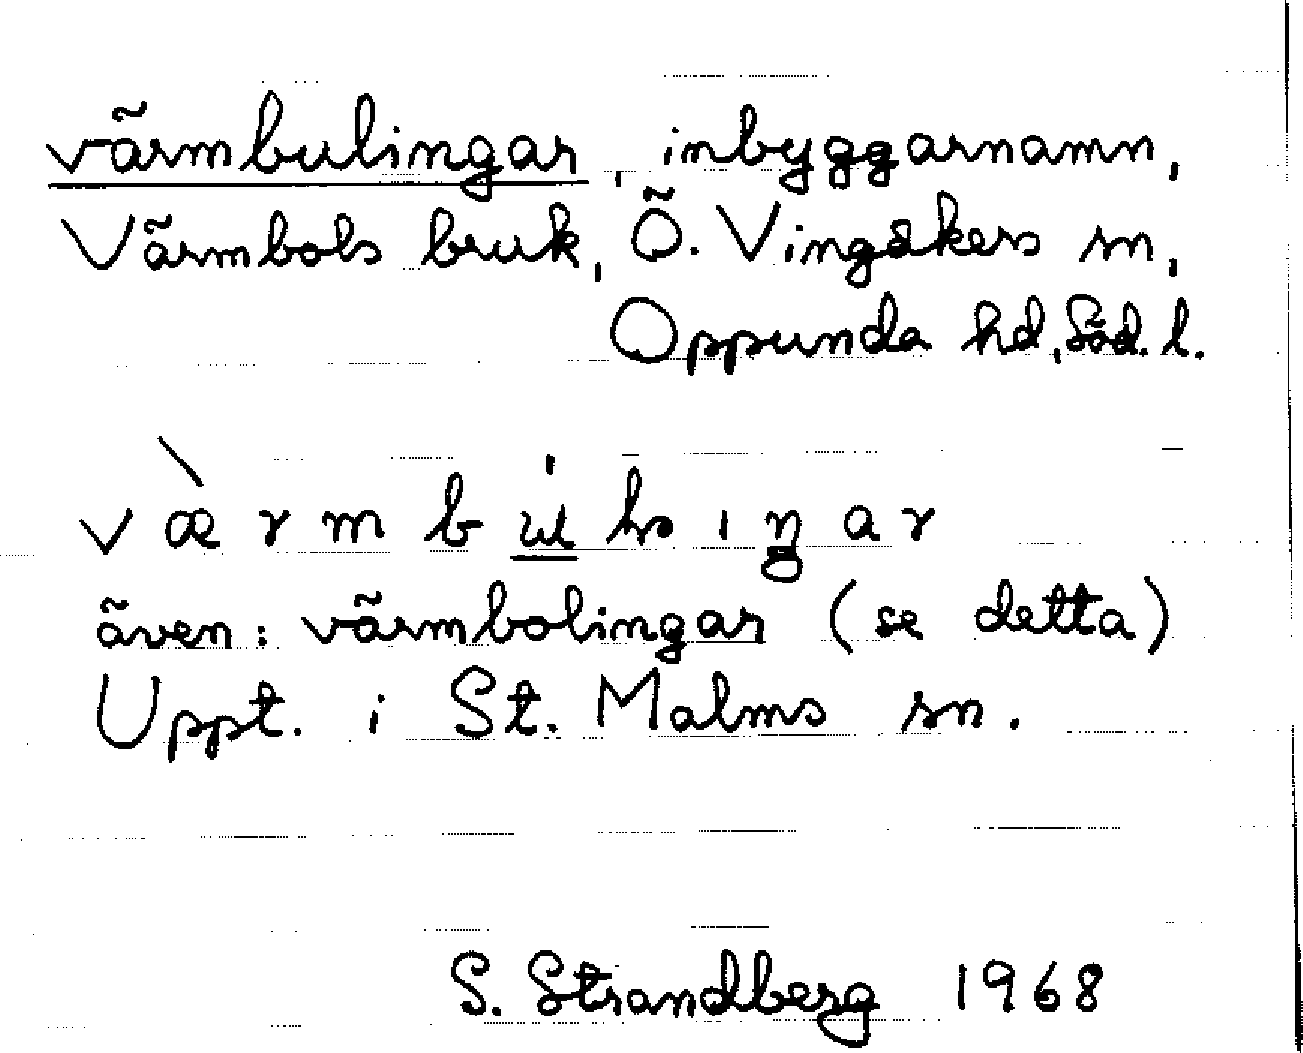 värmbulingar, inbyggarnamn,
Värmbols bruk, Ö. Vingåkers sn,
Oppunda hd, Söd. l.
även: värmbolingar (se detta)
Uppt. i St. Malms sn.
S. Strandberg 1968